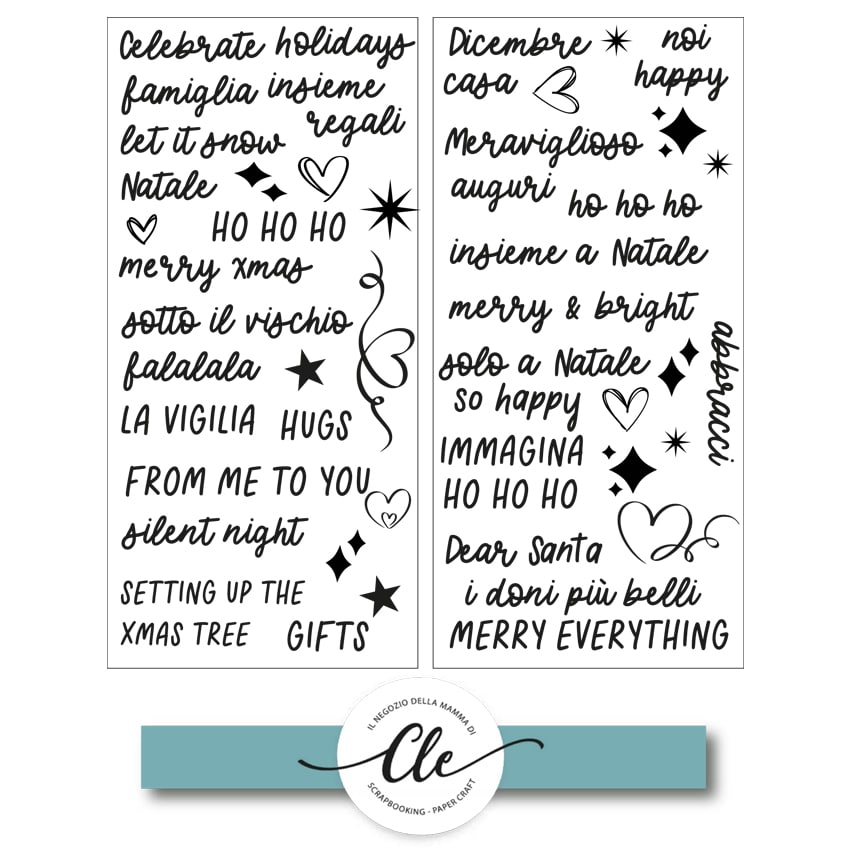 Celebrate holidays
famiglia insieme
regali
let it snow
Natale
HO HO HO
merry xmas
sotto il vischio
falalala
LA VIGILIA HUGS
FROM ME TO YOU
silent night
SETTING UP THE
XMAS TREE GIFTS
Dicembre noi
casa happy
Meraviglioso
auguri ho ho ho
insieme a Natale
merry & bright
solo a Natale
abbracci
so happy
IMMAGINA
HO HO HO
Dear Santa
i doni più belli
MERRY EVERYTHING
IL NEGOZIO DELLA MAMMA DI
Cle
SCRAPBOOKING - PAPER CRAFT